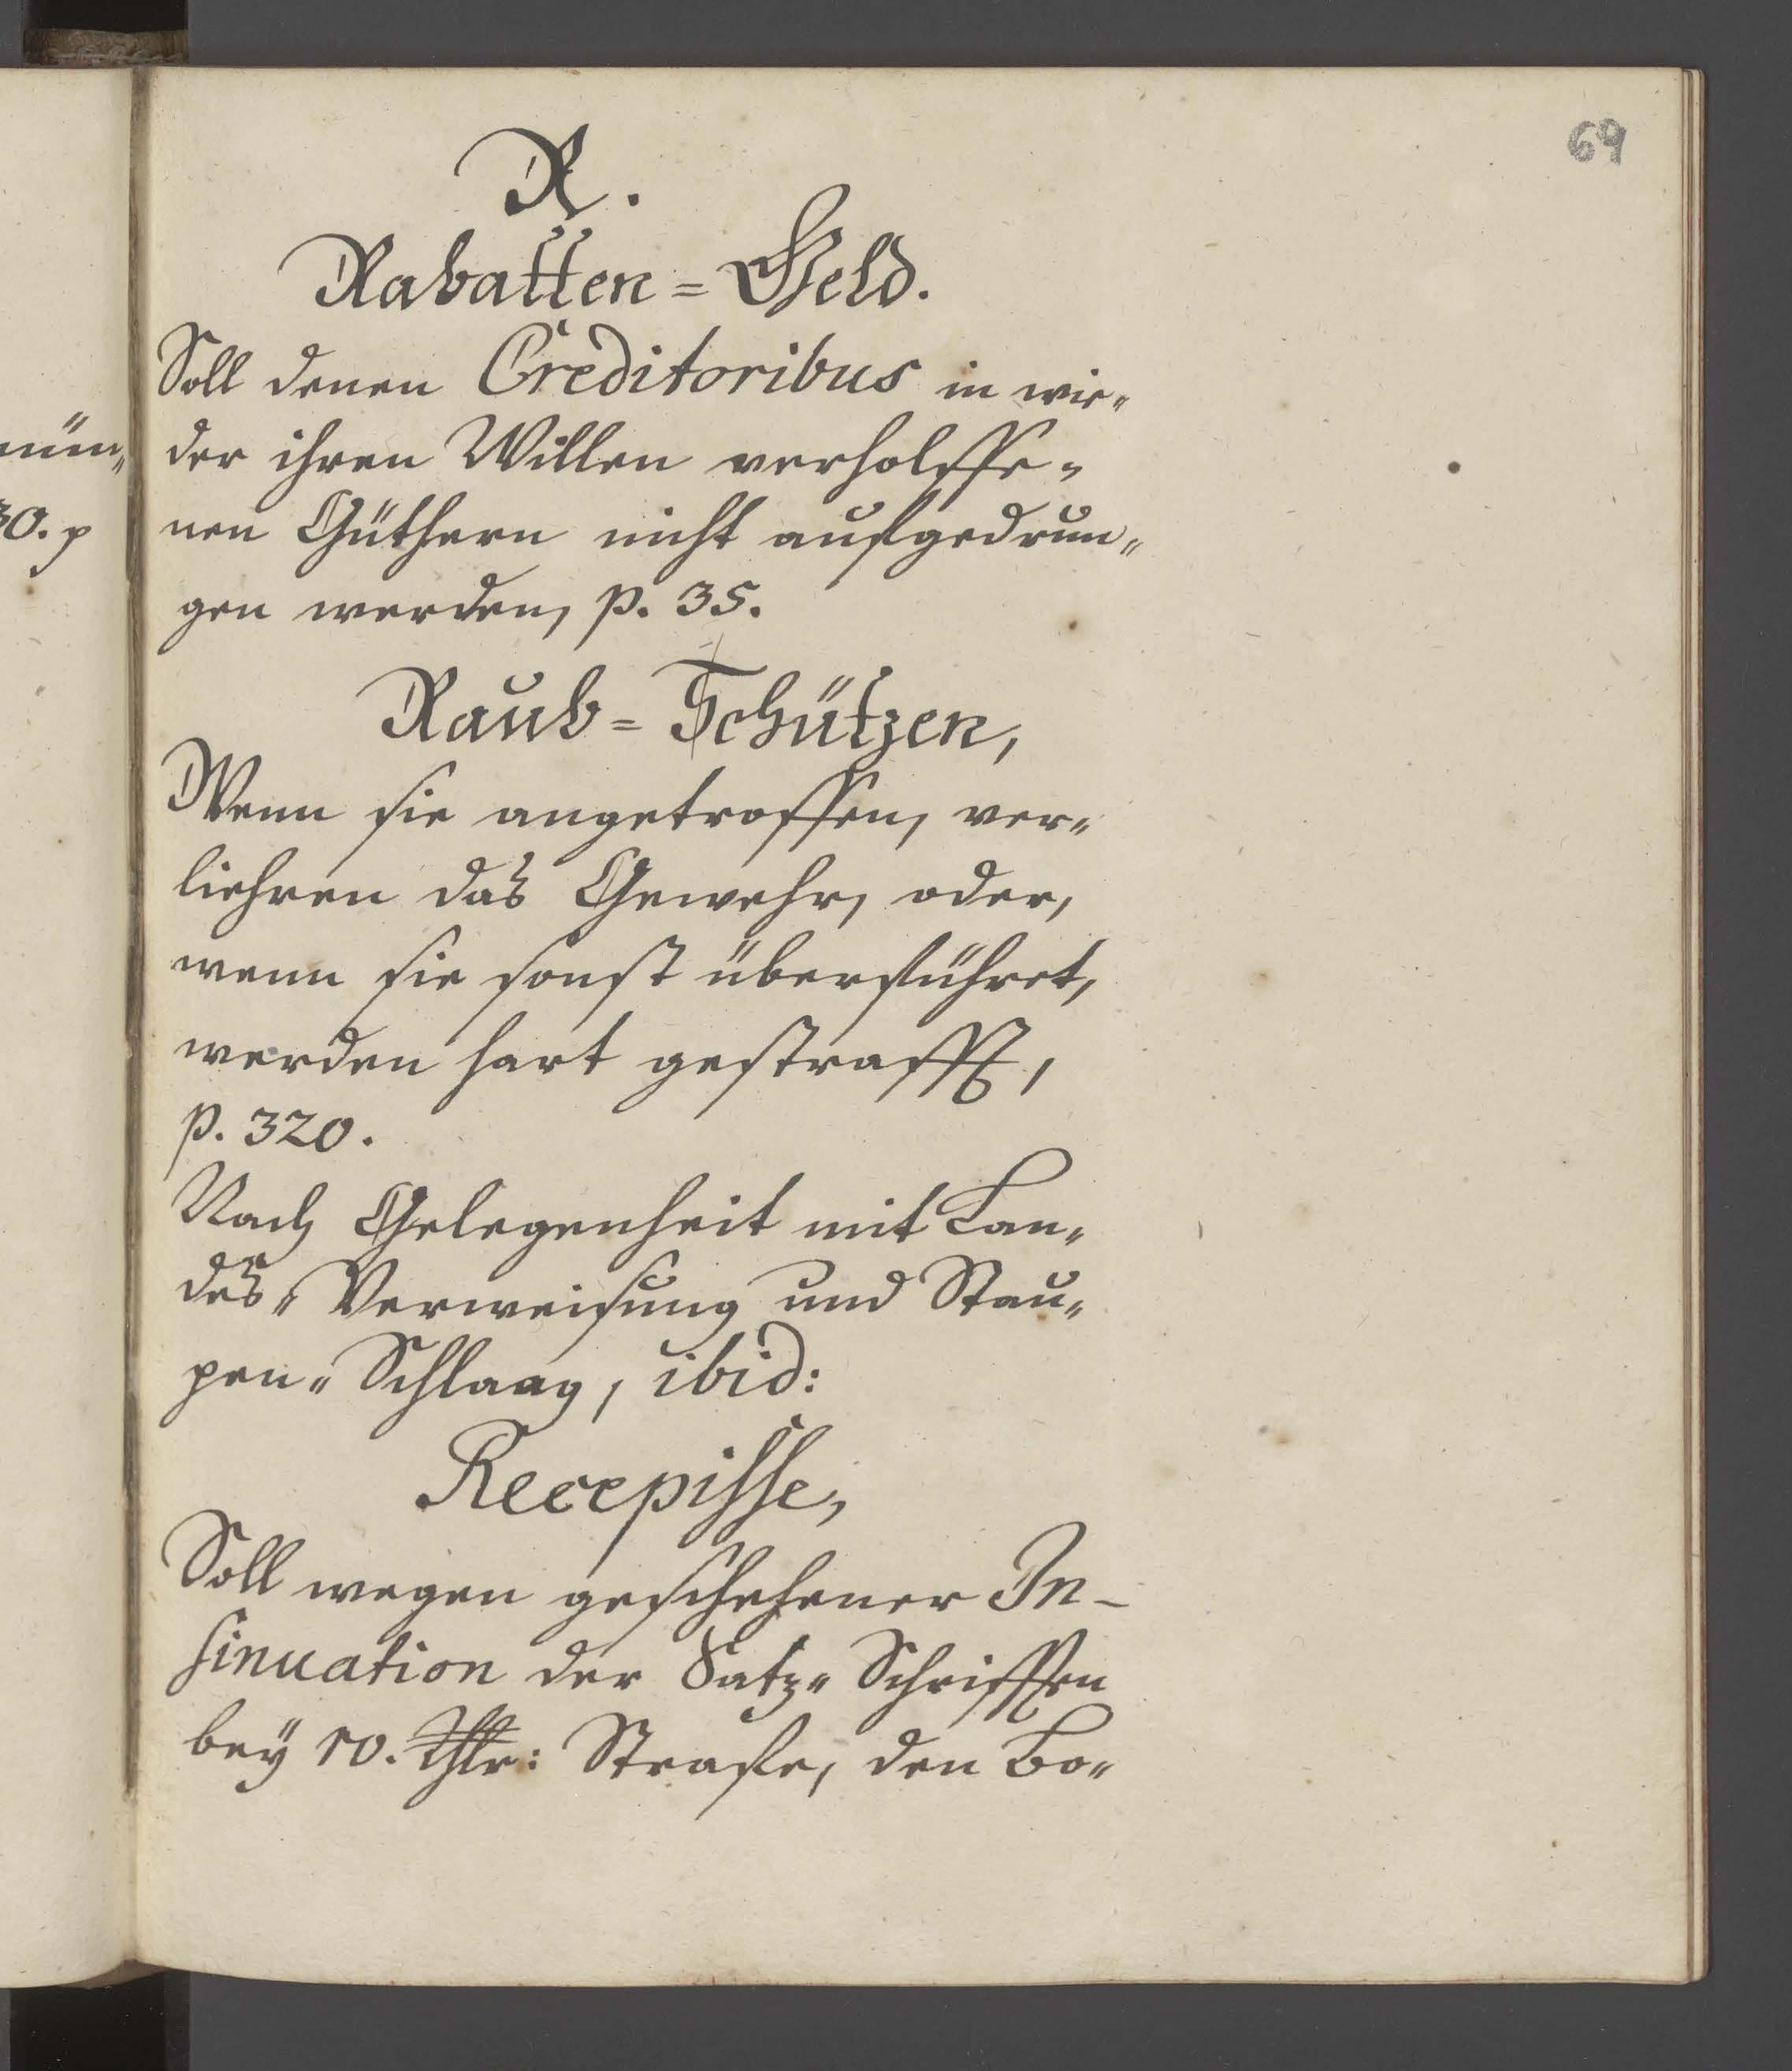 69
R.
Rabatten=Geld.
Soll denen Creditoribus in wie=
der ihren Willen verholffe=
nen Güthern nicht aufgedrun=
gen werden, p. 35.
Raub=Schützen,
Wenn sie angetroffen, ver=
liehren das Gewehr, oder,
wenn sie sonst überführet,
werden hart gestrafft,
p. 320.
Nach Gelegenheit mit Lan=
des=Verweisung und Stau=
pen=Schlaag, ibid:
Recepisse,
Soll wegen geschehener In-
sinuation der Satz=Schrifften
bey 10. Thlr: Strafe, den Bo=
nün=
30. p